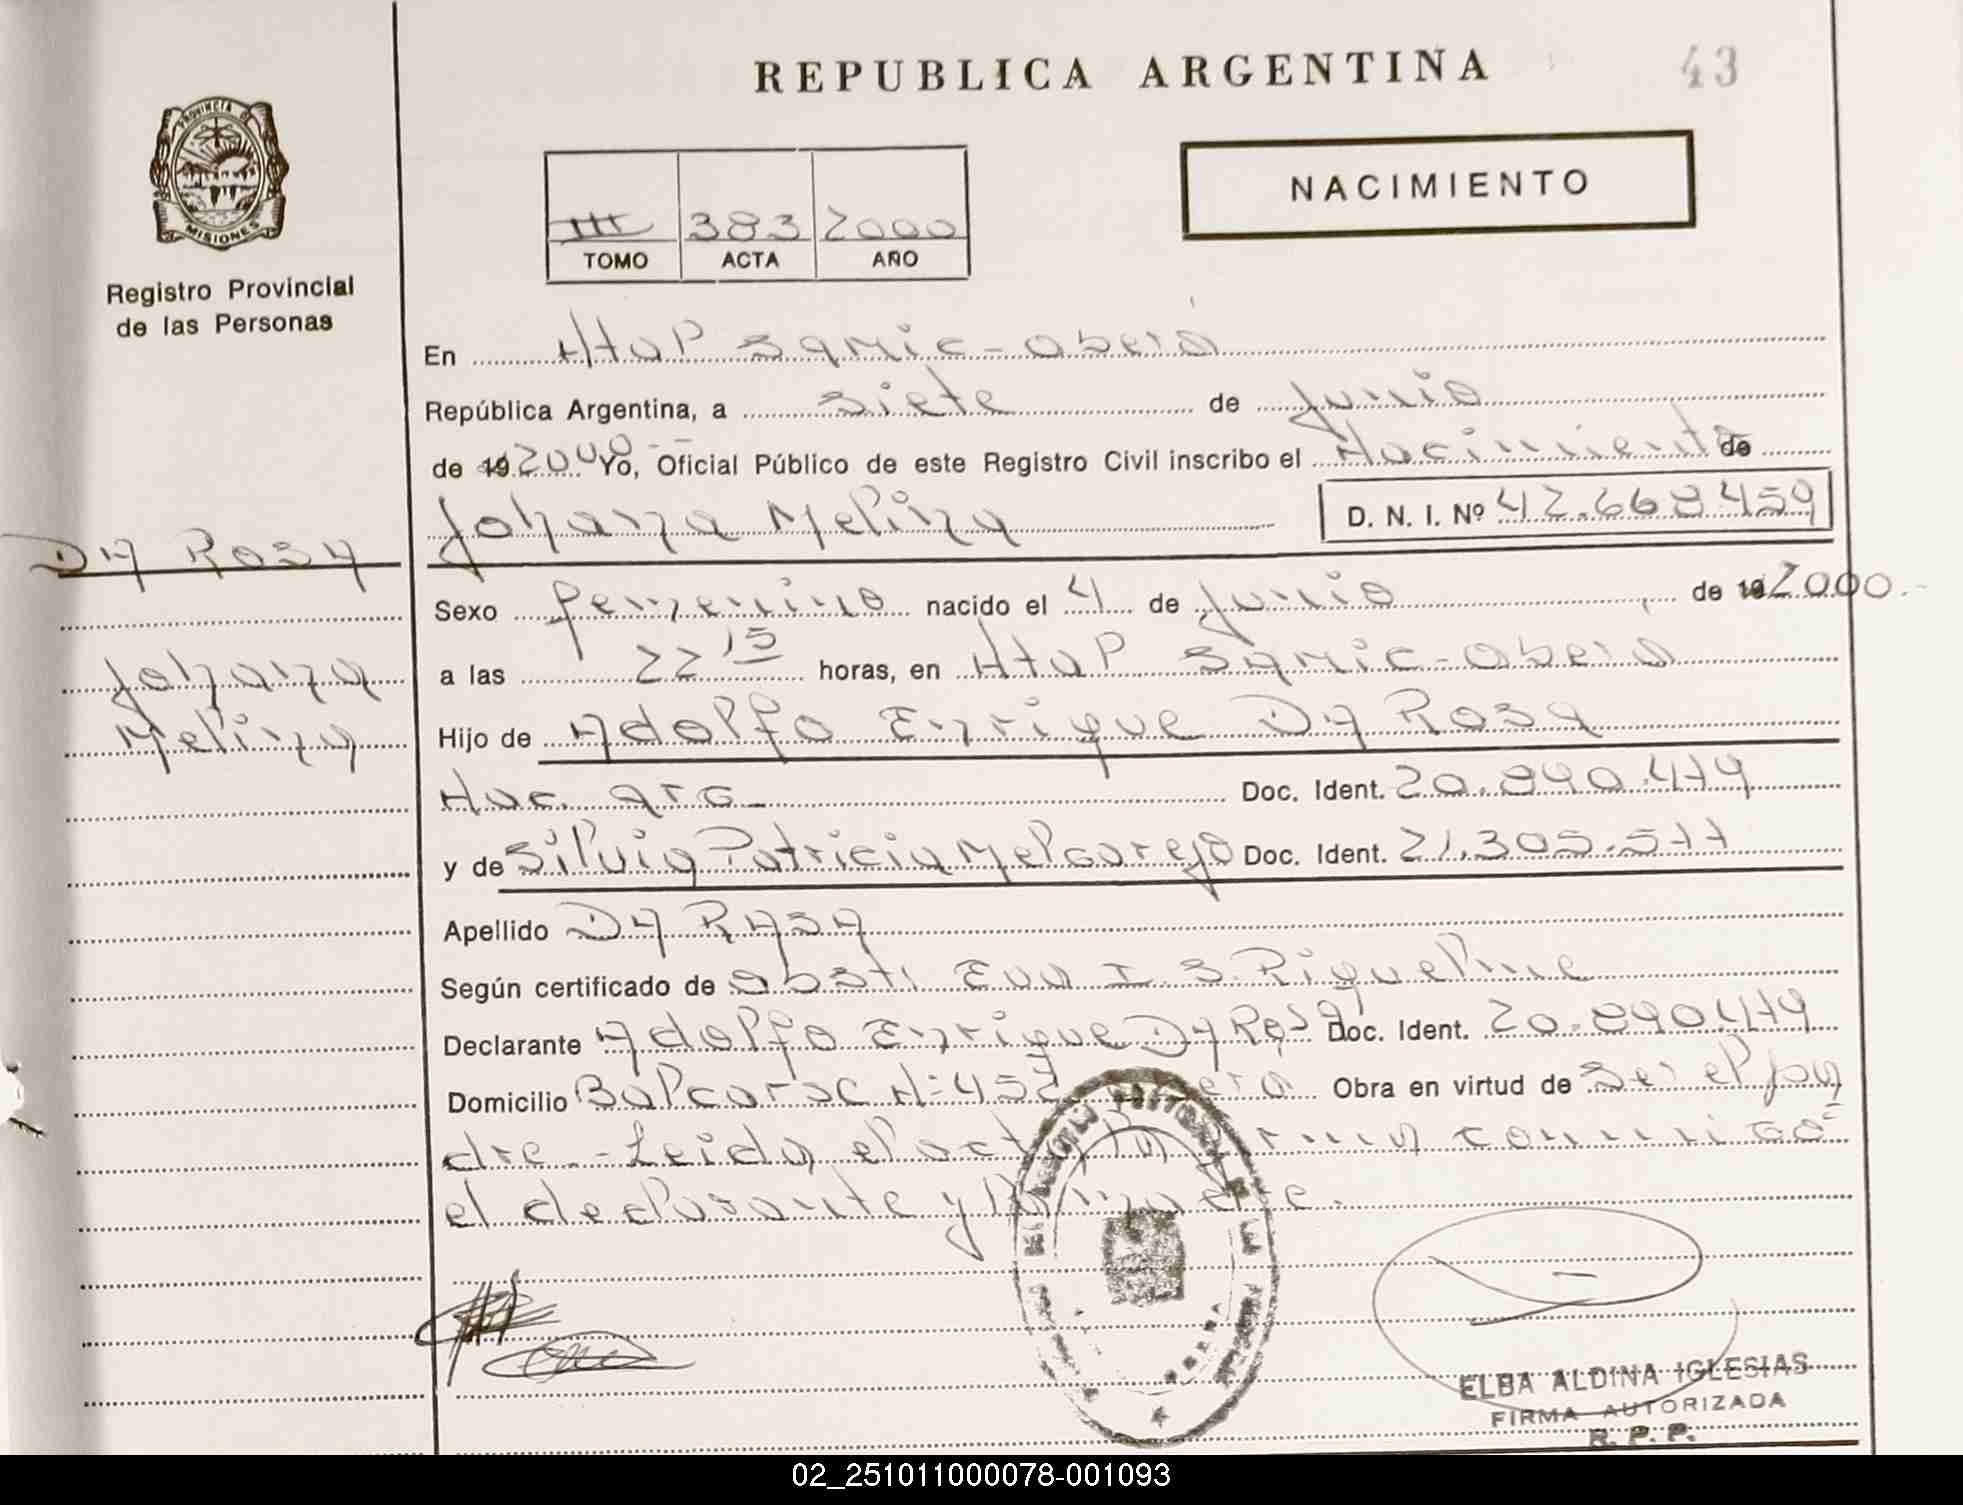 REPUBLICA ARGENTINA
43
PROVINCIA DE
MISIONES
Registro Provincial
de las Personas
NACIMIENTO
III 383 2000
TOMO ACTA AÑO
En Htal Samic - Oberá
República Argentina, a siete de Junio
de 19 2000 -- Yo, Oficial Público de este Registro Civil inscribo el Nacimiento de
Johana Melina D. N. I. Nº 42.668.459
DA ROSA
Johana
Melina
Sexo femenino nacido el 4 de Junio de 19 2000.-
a las 22 15 horas, en Htal Samic - Oberá
Hijo de Adolfo Enrique Da Rosa
Nac. arg. Doc. Ident. 20.890.479
y de Silvia Patricia Melgarejo Doc. Ident. 21.305.577
Apellido DA ROSA
Según certificado de Obst. Eva I. S. Riquelme
Declarante Adolfo Enrique Da Rosa Doc. Ident. 20.890.479
Domicilio Balcarse N: 457 Oberá Obra en virtud de ser el pa
dre.- Leida el acta, la firma conmigo
el declarante
ELBA ALDINA IGLESIAS
FIRMA AUTORIZADA
R. P. P.
02_251011000078-001093